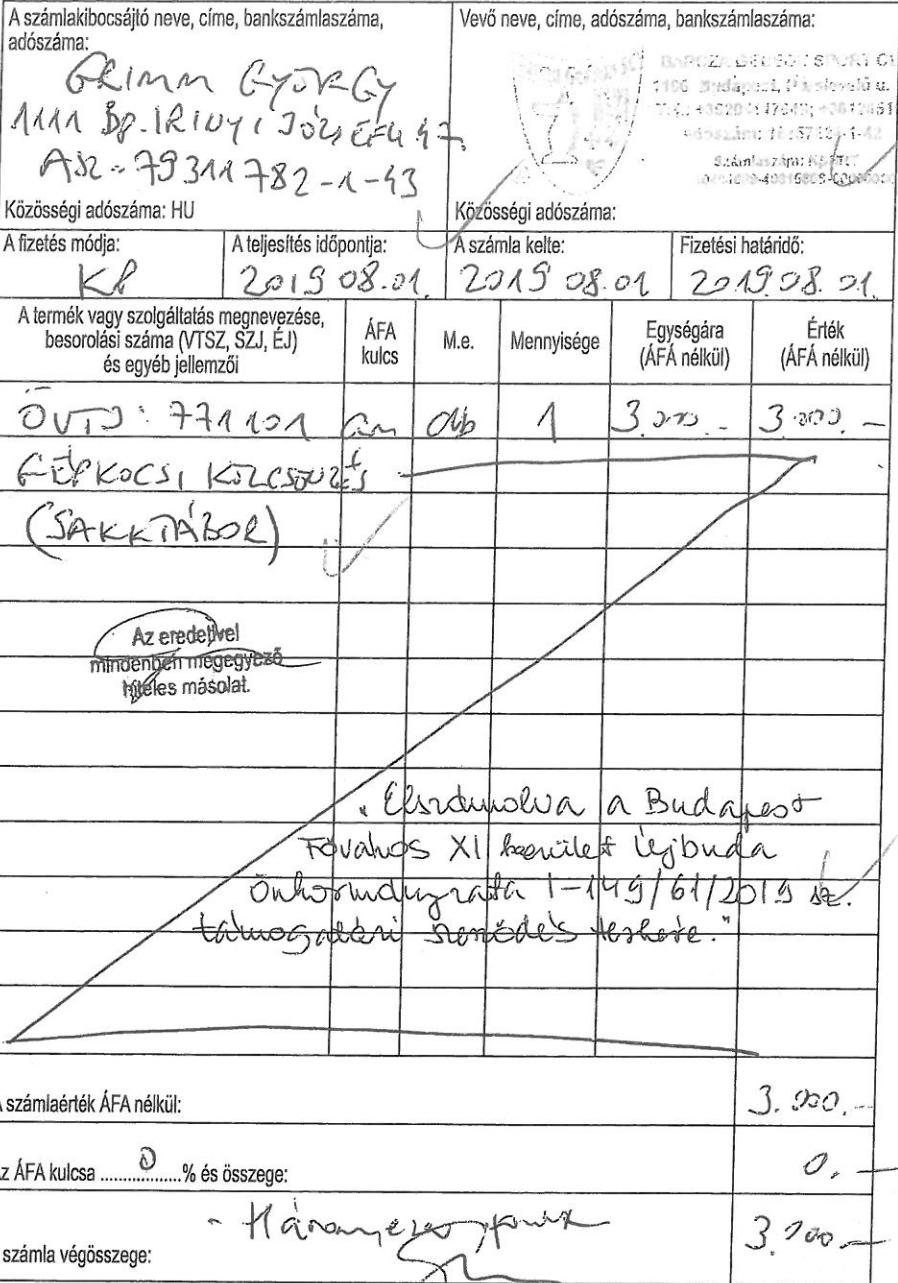 A számlakibocsájtó neve, címe, bankszámlaszáma,
adószáma:
GRIMM GYÖRGY
1111 Bp. IRINYI JÓZSEF U 47.
ASZ - 79311782-1-43
Közösségi adószáma: HU
Vevő neve, címe, adószáma, bankszámlaszáma:
SPORT
Budapest,
Közösségi adószáma:
A fizetés módja:
KP
A teljesítés időpontja:
2019 08.01.
A számla kelte:
2019 08.01
Fizetési határidő:
2019.08.01.
A termék vagy szolgáltatás megnevezése,
besorolási száma (VTSZ, SZJ, ÉJ)
és egyéb jellemzői
ÁFA
kulcs
M.e.
Mennyisége
Egységára
(ÁFÁ nélkül)
Érték
(ÁFÁ nélkül)
ÖVTJ: 771101 db 1 3.000.- 3.000.-
GÉPKOCSI KÖLCSÖNZÉS
(SAKKTÁBOR)
Az eredetivel
mindenben megegyező
hiteles másolat.
"Elszámolva a Budapest
Főváros XI kerület Újbuda
Önkormányzata 1-149/61/2019 sz.
támogatási szerződés terhére."
A számlaérték ÁFA nélkül: 3.000.-
Az ÁFA kulcsa ....0.... % és összege: 0.-
- Háromezer forint
számla végösszege: 3.000.-